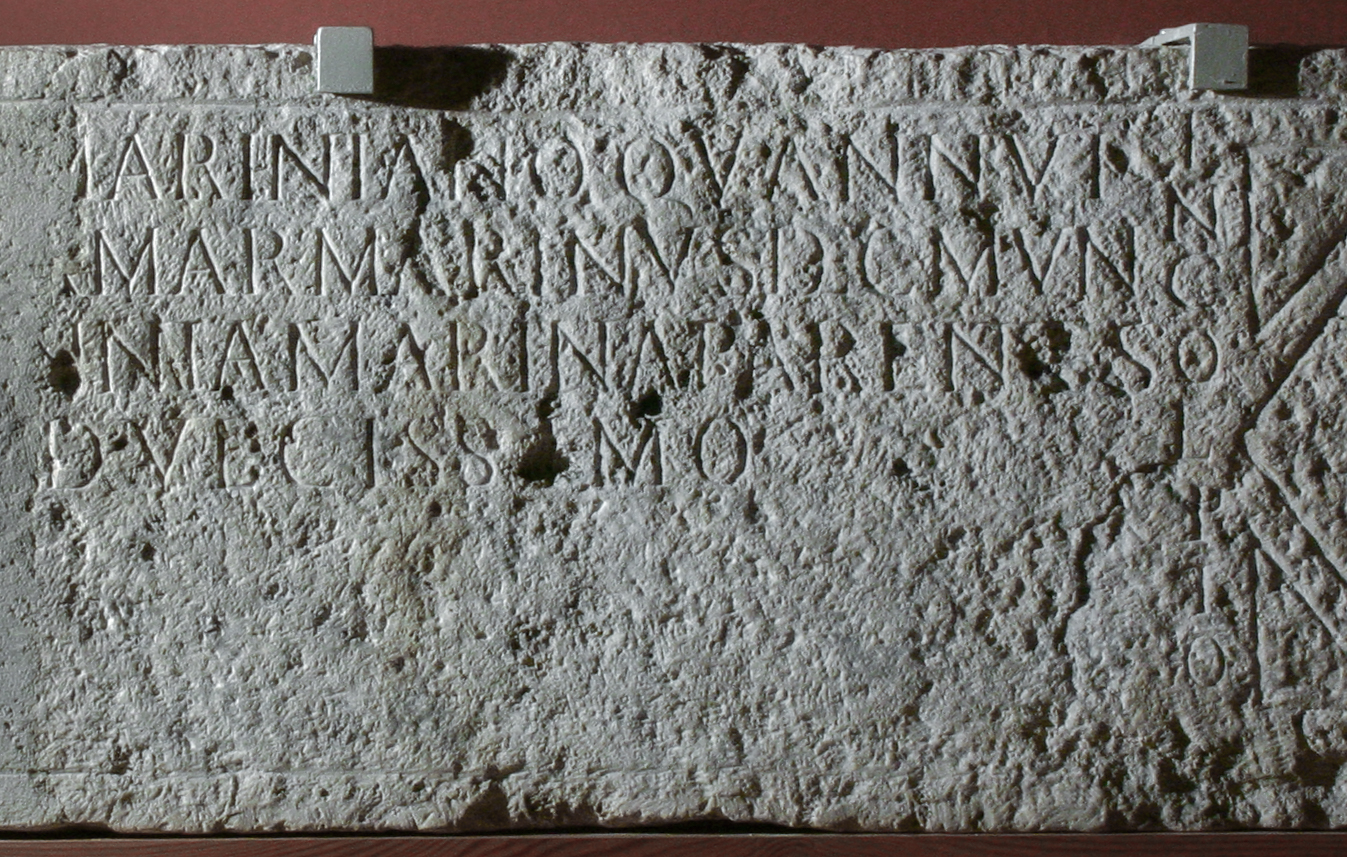 MARINIANO Q V ANN VI
MAR MARINVS DEC MVN
INIA MARINA PARENTES
DVLCISSIMO